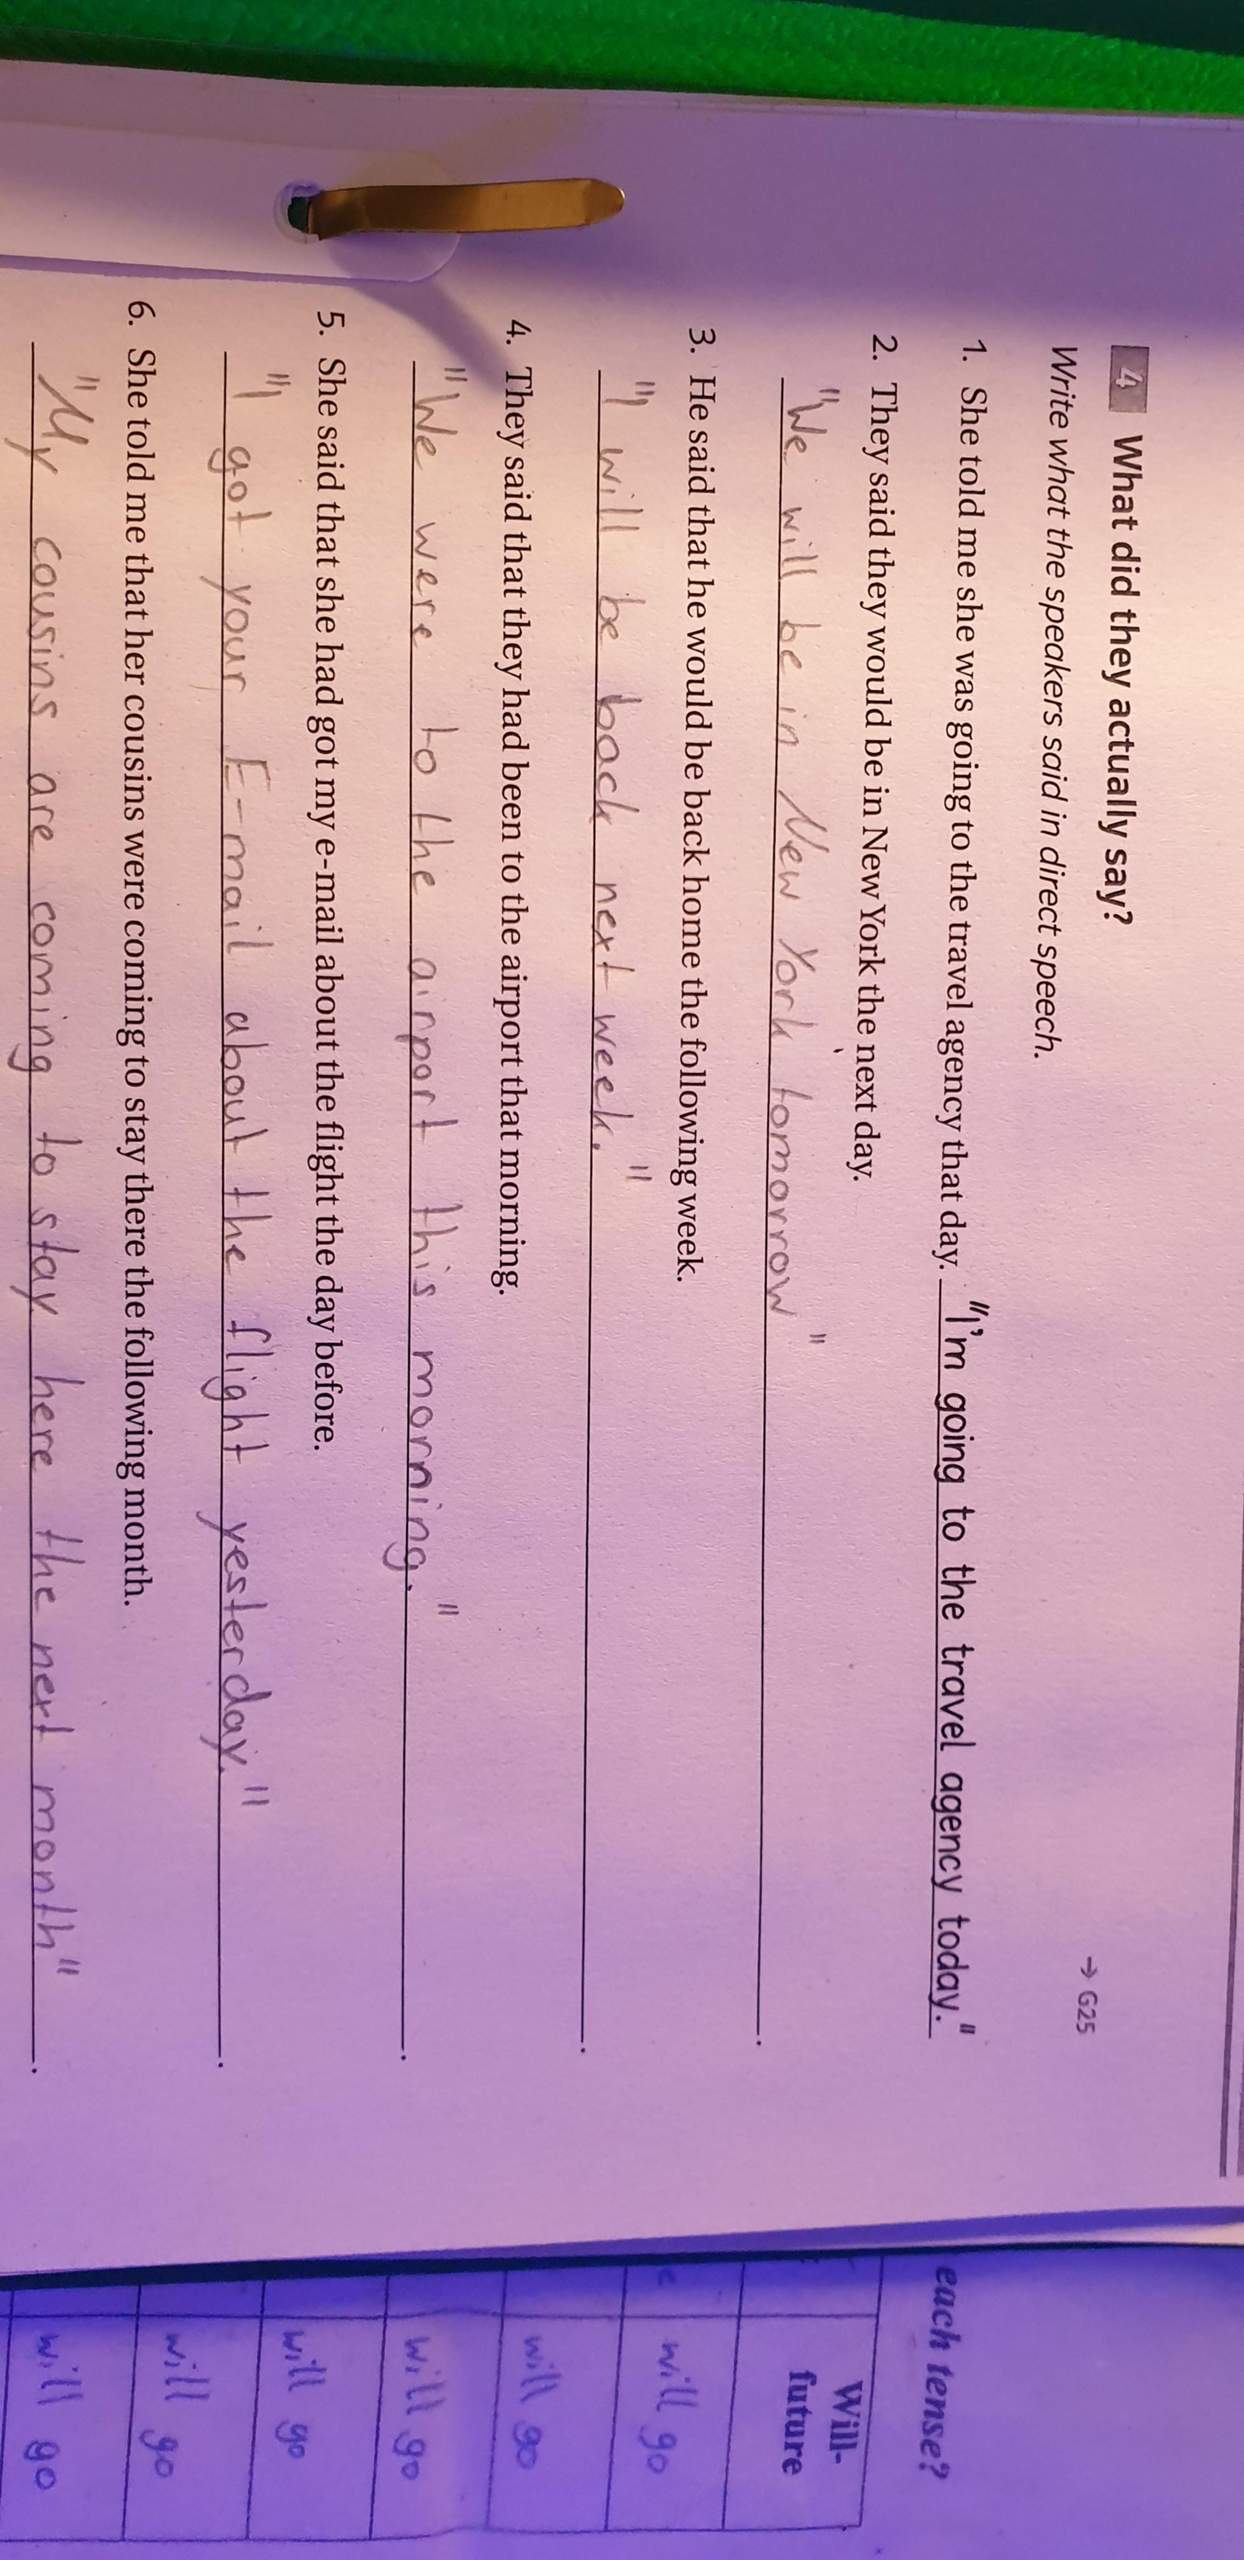 4 What did they actually say?
→ G25
Write what the speakers said in direct speech.
1. She told me she was going to the travel agency that day. "I'm going to the travel agency today."
2. They said they would be in New York the next day.
"We will be in New York tomorrow".
3. He said that he would be back home the following week.
"I will be back next week.".
4. They said that they had been to the airport that morning.
"We were to the airport this morning.".
5. She said that she had got my e-mail about the flight the day before.
"I got your E-mail about the flight yesterday.".
6. She told me that her cousins were coming to stay there the following month.
"My cousins are coming to stay here the next month".
each tense?
Will-
future
will go
will go
will go
will go
will go
will go